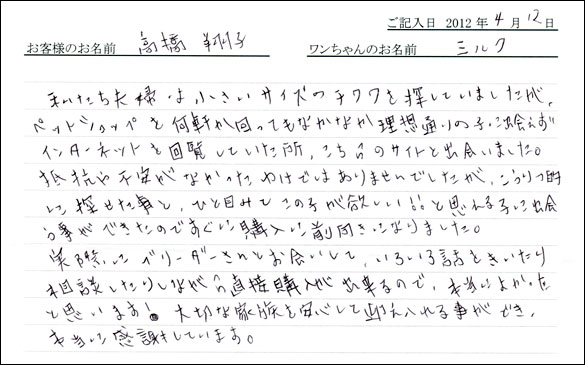 ご記入日 2012年4月12日
お客様のお名前 高橋 翔子 ワンちゃんのお名前 ミルク
私たち夫婦は小さいサイズのチワワを探していましたが、
ペットショップを何軒か回ってもなかなか理想通りの子に出会えず
インターネットを回覧していた所、こちらのサイトと出会いました。
抵抗や不安がなかったわけではありませんでしたが、こうりつ的
に探せた事と、ひと目みてこの子が欲しい!!と思れる子に出会
う事ができたのですぐに購入に前向きになりました。
実際にブリーダーさんとお会いして、いろいろ話をきいたり
相談したりしながら直接購入が出来るので、本当によかった
と思います!大切な家族を安心して迎え入れる事ができ、
本当に感謝しています。